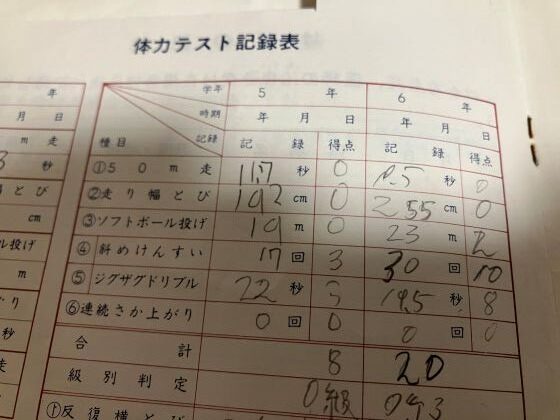 体力テスト記録表
年 学年 5 年 6 年
月 日 時期 年 月 日 年 月 日
m 走 種目 記録 記 録 得点 記 録 得点
秒 ①50m走 11.7 秒 0 秒 0
とび ②走り幅とび 192 cm 0 255 cm 0
cm ③ソフトボール投げ 19 m 0 23 m 2
ル投げ ④斜めけんすい 17 回 3 30 回 10
m ⑤ジグザグドリブル 22 秒 19.5 秒 8
回 ⑥連続さか上がり 0 回 0 0 回 0
合計 8 20
秒 級別判定 0級
走 ①反復横とび